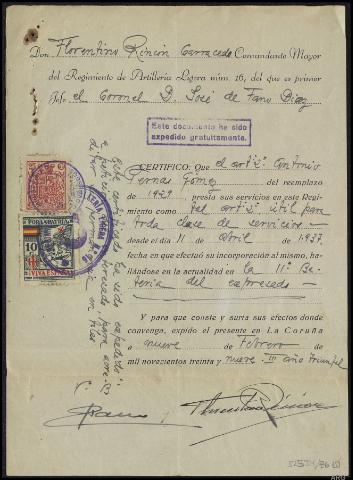 Don Florentino Rincón Carracedo Comandante Mayor
del Regimiento de Artillería Ligera núm. 16, del que es primer
Jefe el Coronel D. José de Fano Díaz
Este documento ha sido
expedido gratuitamente.
CERTIFICO: Que el artº 2º Antonio
Pernas Gómez del reemplazo
de 1929 presta sus servicios en este Regi-
miento como tal artº 2º útil para
toda clase de servicios
desde el día 11 de abril de 1937
fecha en que efectuó su incorporación al mismo, ha-
llándose en la actualidad en la 11ª Ba-
tería del expresado
Y para que conste y surta sus efectos donde
convenga, expido el presente en La Coruña
a nueve de febrero de
mil novecientos treinta y nueve III año triunfal
Este certificado ha sido expedido
a petición del interesado, para
POR LA PATRIA
10
VIVA ESPAÑA
Vº Bº
Florentino Rincón